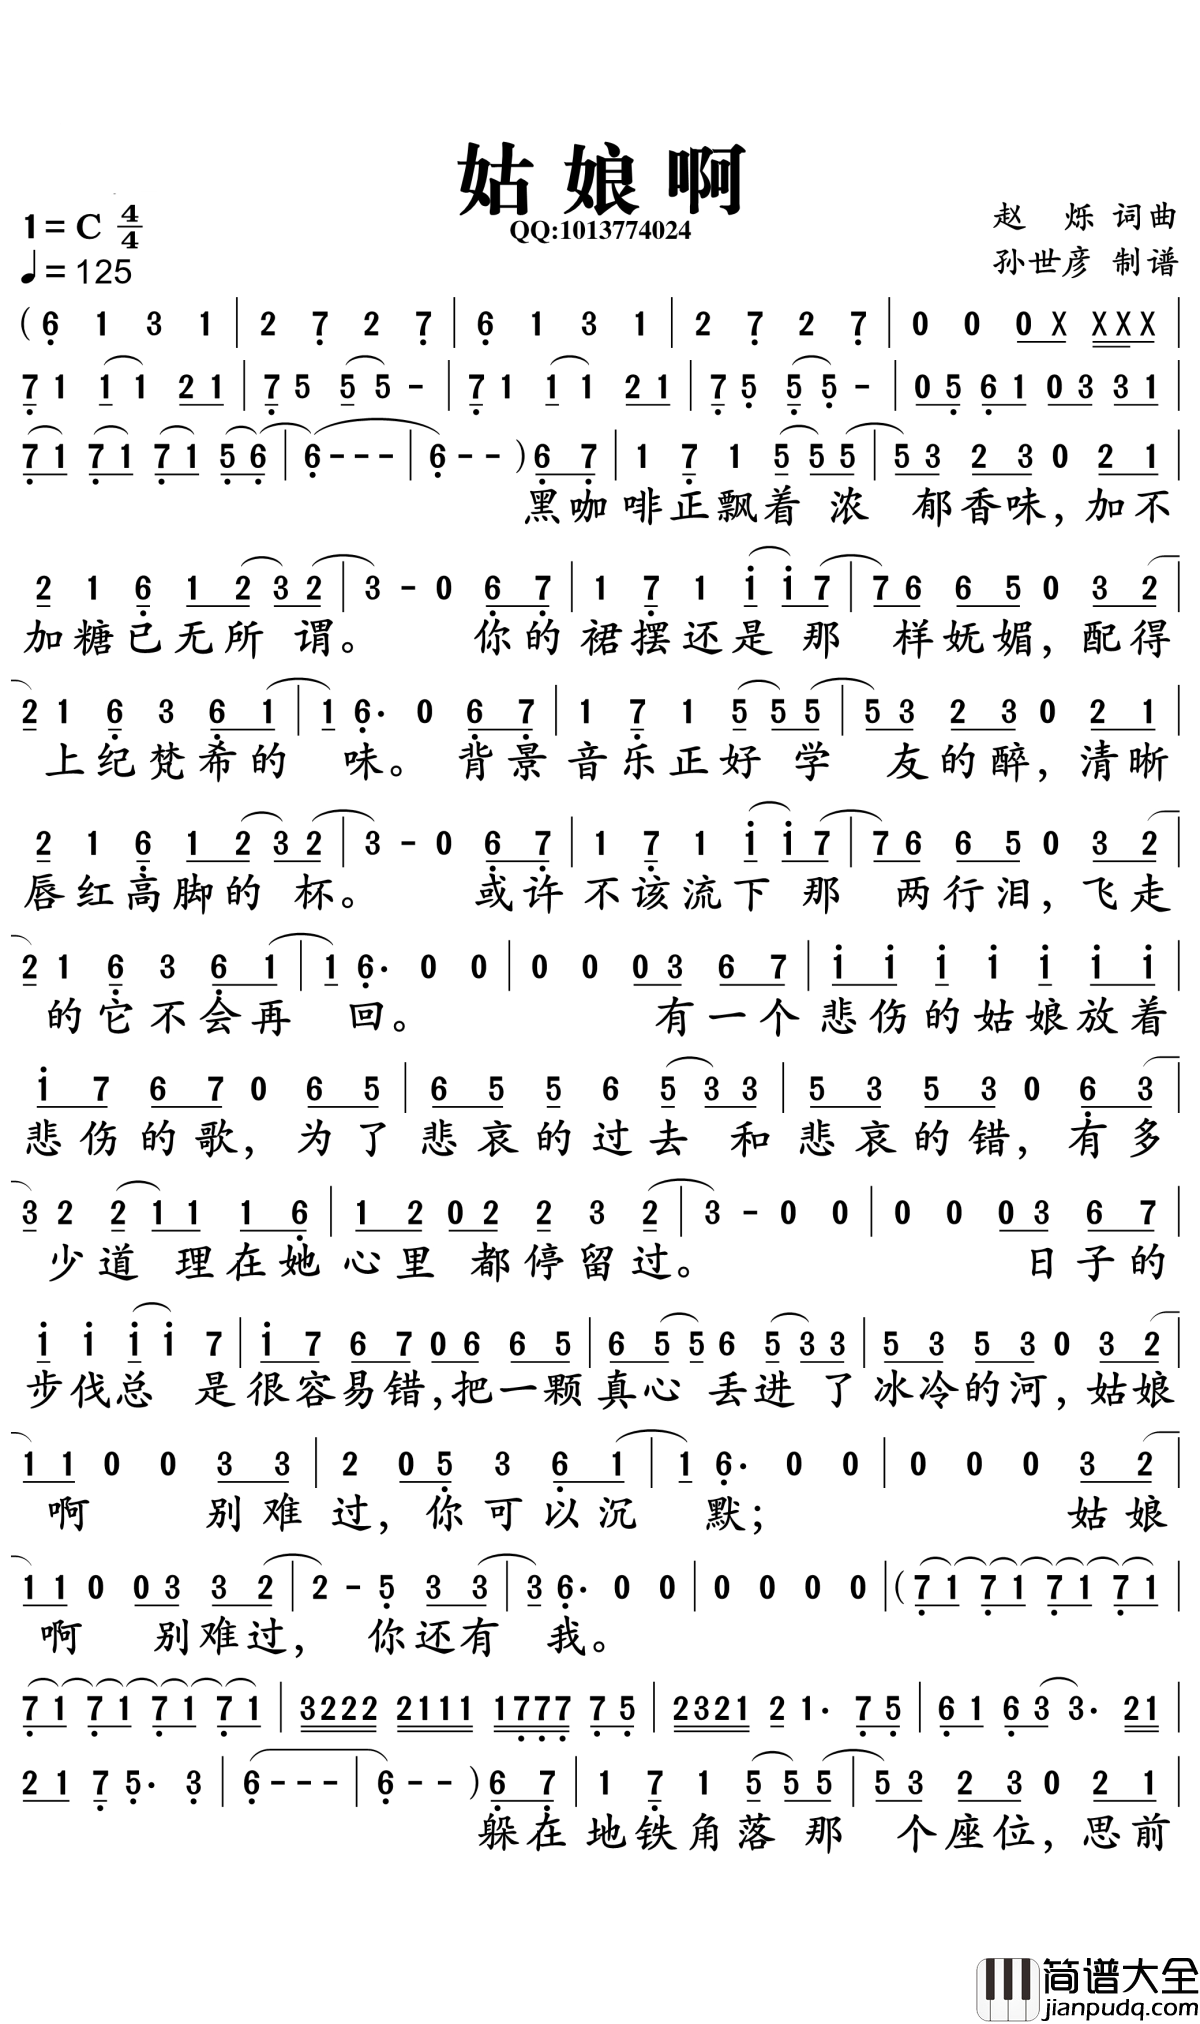 姑娘啊
QQ:1013774024
1= C 4/4
♩= 125
赵 烁 词曲
孙世彦 制谱
( 6 1 3 1 | 2 7 2 7 | 6 1 3 1 | 2 7 2 7 | 0 0 0 X X X X |
7 1 1 1 2 1 | 7 5 5 5 - | 7 1 1 1 2 1 | 7 5 5 5 - | 0 5 6 1 0 3 3 1 |
7 1 7 1 7 1 5 6 | 6 - - - | 6 - - ) 6 7 | 1 7 1 5 5 5 | 5 3 2 3 0 2 1 |
黑咖啡正飘着 浓 郁香味，加不
2 1 6 1 2 3 2 | 3 - 0 6 7 | 1 7 1 i i 7 | 7 6 6 5 0 3 2 |
加糖已无所 谓。 你的裙摆还是 那 样妩媚，配得
2 1 6 3 6 1 | 1 6· 0 6 7 | 1 7 1 5 5 5 | 5 3 2 3 0 2 1 |
上纪梵希的 味。 背景音乐正好 学 友的醉，清晰
2 1 6 1 2 3 2 | 3 - 0 6 7 | 1 7 1 i i 7 | 7 6 6 5 0 3 2 |
唇红高脚的 杯。 或许不该流下 那 两行泪，飞走
2 1 6 3 6 1 | 1 6· 0 0 | 0 0 0 3 6 7 | i i i i i i i |
的它不会再 回。 有一个悲伤的姑娘放着
i 7 6 7 0 6 5 | 6 5 5 6 5 3 3 | 5 3 5 3 0 6 3 |
悲伤的歌，为了悲哀的过去 和悲哀的错，有多
3 2 2 1 1 1 6 | 1 2 0 2 2 3 2 | 3 - 0 0 | 0 0 0 3 6 7 |
少道 理在她心里 都停留过。 日子的
i i i i 7 | i 7 6 7 0 6 6 5 | 6 5 5 6 5 3 3 | 5 3 5 3 0 3 2 |
步伐总 是很容易错，把一颗真心 丢进 了冰冷的河，姑娘
1 1 0 0 3 3 | 2 0 5 3 6 1 | 1 6· 0 0 | 0 0 0 3 2 |
啊 别难过，你可以沉 默； 姑娘
1 1 0 0 3 3 2 | 2 - 5 3 3 | 3 6· 0 0 | 0 0 0 0 | ( 7 1 7 1 7 1 7 1 |
啊 别难过， 你还有 我。
7 1 7 1 7 1 7 1 | 3 2 2 2 2 1 1 1 1 7 7 7 7 5 | 2 3 2 1 2 1· 7 5 | 6 1 6 3 3· 2 1 |
2 1 7 5· 3 | 6 - - - | 6 - - ) 6 7 | 1 7 1 5 5 5 | 5 3 2 3 0 2 1 |
躲在地铁角落 那 个座位，思前
简谱大全
jianpudq.com